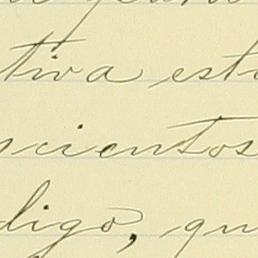 tiva est
scientos
digo, qu